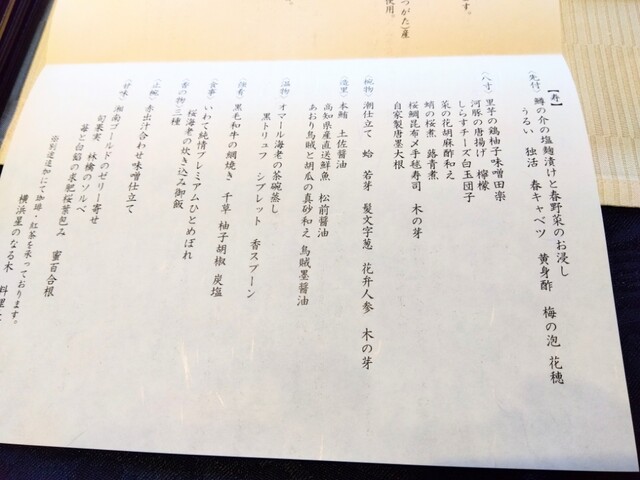 す。
つがた)産
使用。
【寿】
〈先付〉 鱒の介の塩麹漬けと春野菜のお浸し
うるい 独活 春キャベツ 黄身酢 梅の泡 花穂
〈八寸〉 里芋の鶏柚子味噌田楽
河豚の唐揚げ 檸檬
しらすチーズ白玉団子
菜の花胡麻酢和え
蛸の桜煮 蕗青煮
桜鯛昆布〆手毬寿司 木の芽
自家製唐墨大根
〈椀物〉 潮仕立て 蛤 若芽 髪文字葱 花弁人参 木の芽
〈造里〉 本鮪 土佐醤油
高知県産直送鮮魚 松前醤油
あおり烏賊と胡瓜の真砂和え 烏賊墨醤油
〈温物〉 オマール海老の茶碗蒸し
黒トリュフ シブレット 香スプーン
〈強肴〉 黒毛和牛の網焼き 千草 柚子胡椒 炭塩
〈食事〉 いわて純情プレミアムひとめぼれ
桜海老の炊き込み御飯
〈香の物〉 三種
〈止椀〉 赤出汁合わせ味噌仕立て
〈甘味〉 湘南ゴールドのゼリー寄せ
旬果実 林檎のソルベ
苺と白餡の求肥桜葉包み 蜜百合根
※別途追加にて珈琲・紅茶を承っております。
横浜星のなる木 料理